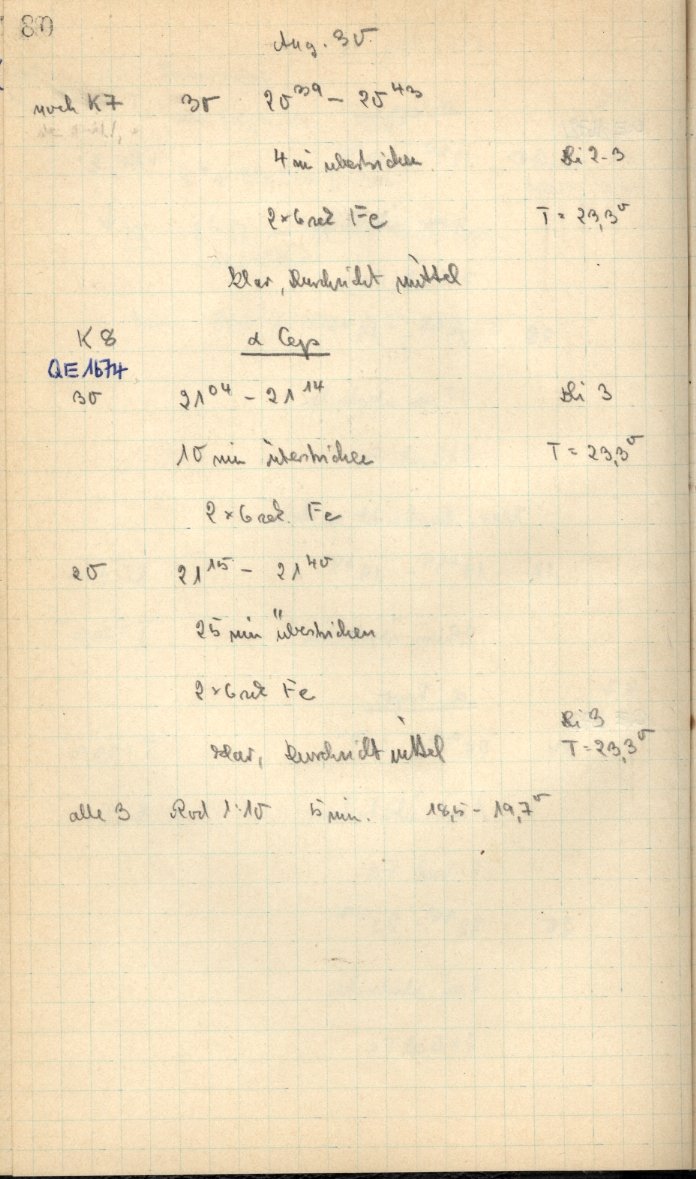 80
Aug. 30
noch K7 30 20³⁹ - 20⁴³
4 min überstrichen 2-3
2×6 sek Fe T = 23,3°
klar, Durchsicht mittel
K 8 α Cep
QE1674
30 21⁰⁴ - 21¹⁴ 3
10 min überstrichen T = 23,3°
2×6 sek. Fe
20 21¹⁵ - 21⁴⁰
25 min überstrichen
2×6 sek Fe
3
klar, Durchsicht mittel T = 23,3°
alle 3 Rod 1:10 5 min. 18,5 - 19,7°